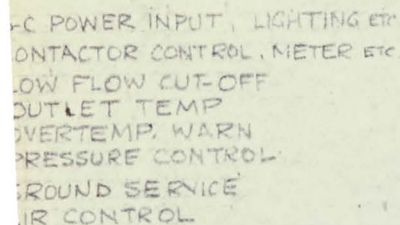 -C POWER INPUT, LIGHTING etc
ONTACTOR CONTROL, METER etc
LOW FLOW CUT-OFF
OUTLET TEMP
OVERTEMP. WARN
PRESSURE CONTROL
GROUND SERVICE
IR CONTROL